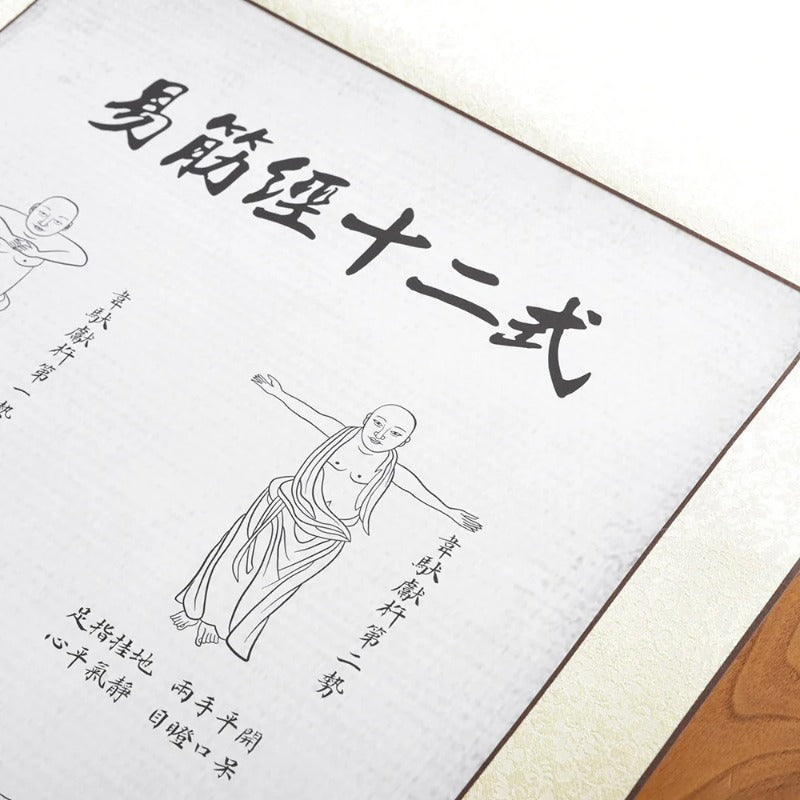 易筋經十二式
韋馱獻杵第一勢
韋馱獻杵第二勢
足指挂地 兩手平開
心平氣靜 目瞪口呆